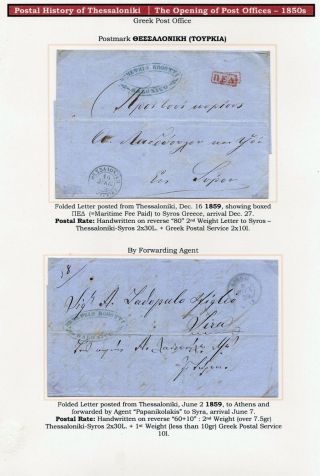 Postal History of Thessaloniki | The Opening of Post Offices – 1850s
Greek Post Office
Postmark ΘΕΣΣΑΛΟΝΙΚΗ (ΤΟΥΡΚΙΑ)
ΠΕΔ
Folded Letter posted from Thessaloniki, Dec. 16 1859, showing boxed
ΠΕΔ (=Maritime Fee Paid) to Syros Greece, arrival Dec. 27.
Postal Rate: Handwritten on reverse "80" 2nd Weight Letter to Syros –
Thessaloniki-Syros 2x30L. + Greek Postal Service 2x10l.
By Forwarding Agent
Sigr A. Ladopulo & figlio
Sira
Folded Letter posted from Thessaloniki, June 2 1859, to Athens and
forwarded by Agent "Papanikolakis" to Syra, arrival June 7.
Postal Rate: Handwritten on reverse "60+10" : 2nd Weight (over 7.5gr)
Thessaloniki-Syros 2x30L. + 1st Weight (less than 10gr) Greek Postal Service
10l.